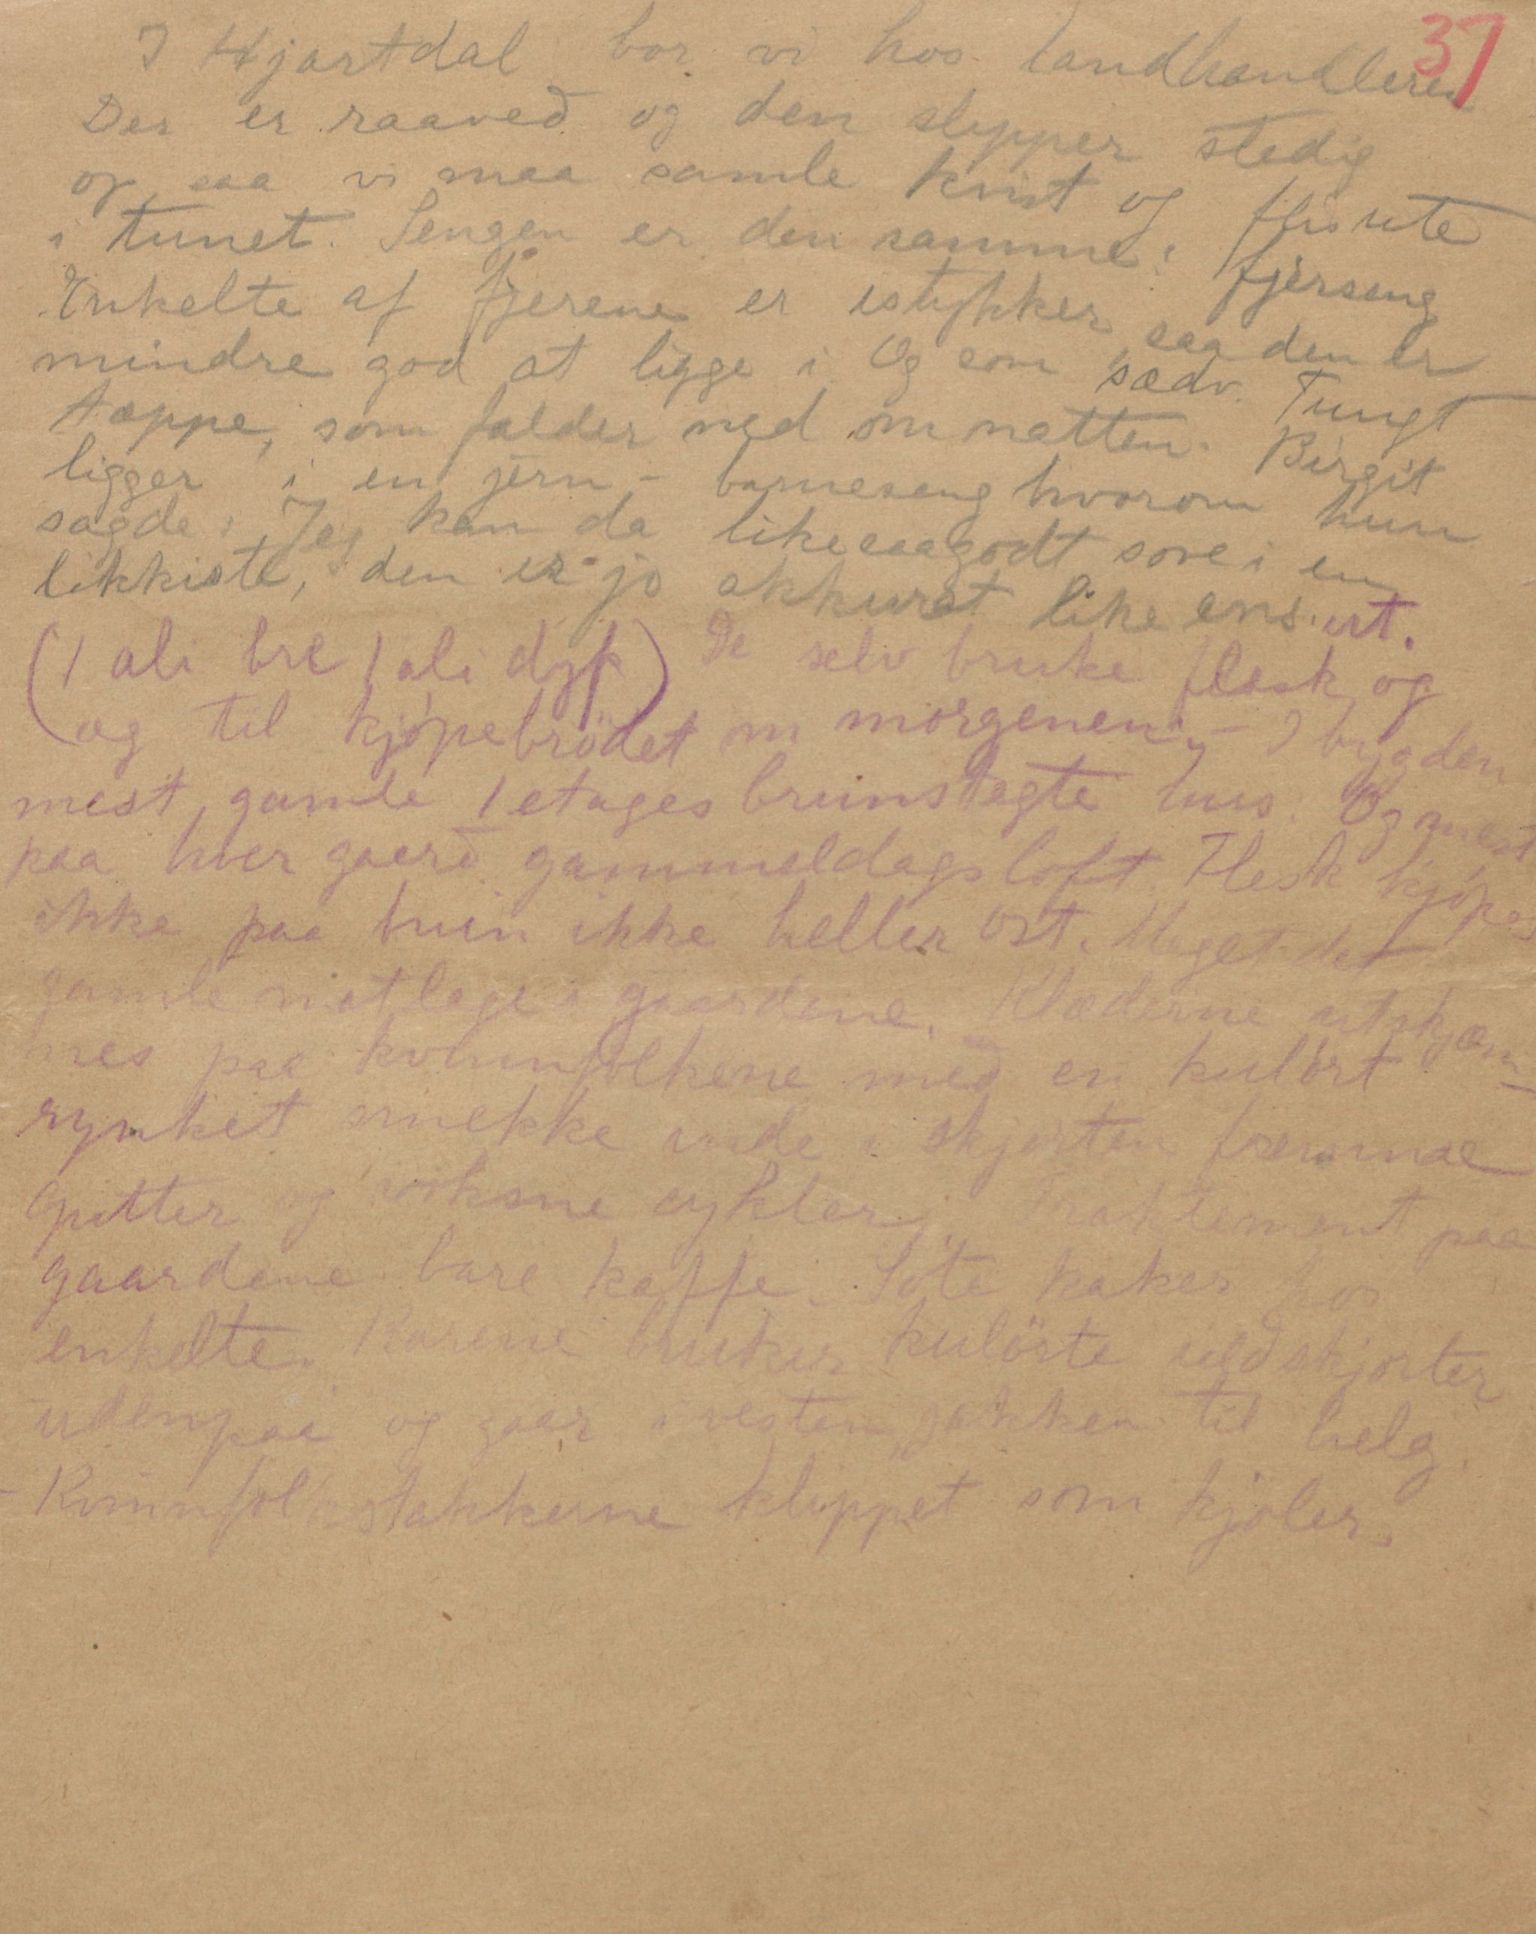 37
I Hjartdal bor vi hos landhandleren
Der er raaved og den slipper stedig
op saa vi maa samle kvist og flis ute
i tunet. Sengen er den samme: fjærseng
Enkelte af fjerene er istykker saa den er
mindre god at ligge i. Og som sædv. Tungt
tæppe, som falder ned om natten. Birgit
ligger i en jern- barneseng hvorom hun
sagde: Jeg kan da likesaagodt sove i en
likkiste, den er jo akkurat like ens ut.
(1 ali bre 1 ali dyp) De selv bruke flæsk og
æg til kjøpebrödet om morgenen. – I bygden
mest gamle 1 etages brunstegte hus. Og mest
paa hver gaard gammeldags loft. Flesk kjøpes
ikke paa buin ikke heller ost. Meget det
gamle matlage i gaardene. Klæderne utskjæm-
mes paa kvinnfolkene med en kulört
rynket smekke inde i skjorten fremmae
gutter og voksne cykler. Traktement paa
gaardene bare kaffe. Söte kaker hos
enkelte. Karene bruker kulörte uldskjorter
udenpaa og gaar i vesten, jakken til helg.
Kvinnfolkstakkerne klippet som kjoler.